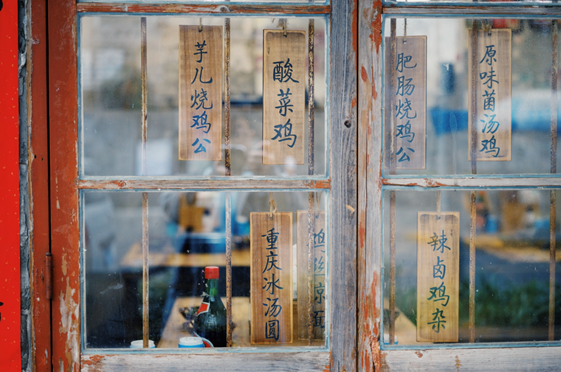 芋儿烧鸡公
酸菜鸡
肥肠烧鸡公
原味菌汤鸡
重庆冰汤圆
辣卤鸡杂